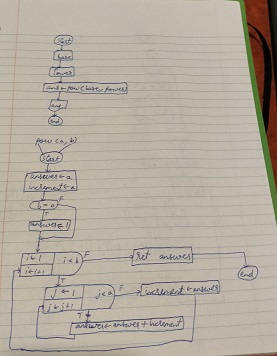 start
base
power
ans ← pow(base, power)
ans
end
pow(a, b)
start
answer ← a
increment ← a
b = 0
F
T
answer ← 1
i ← 1
i < b
i ← i+1
F
ret answer
end
T
j ← 1
j < a
j ← j+1
F
increment ← answer
T
answer ← answer + increment